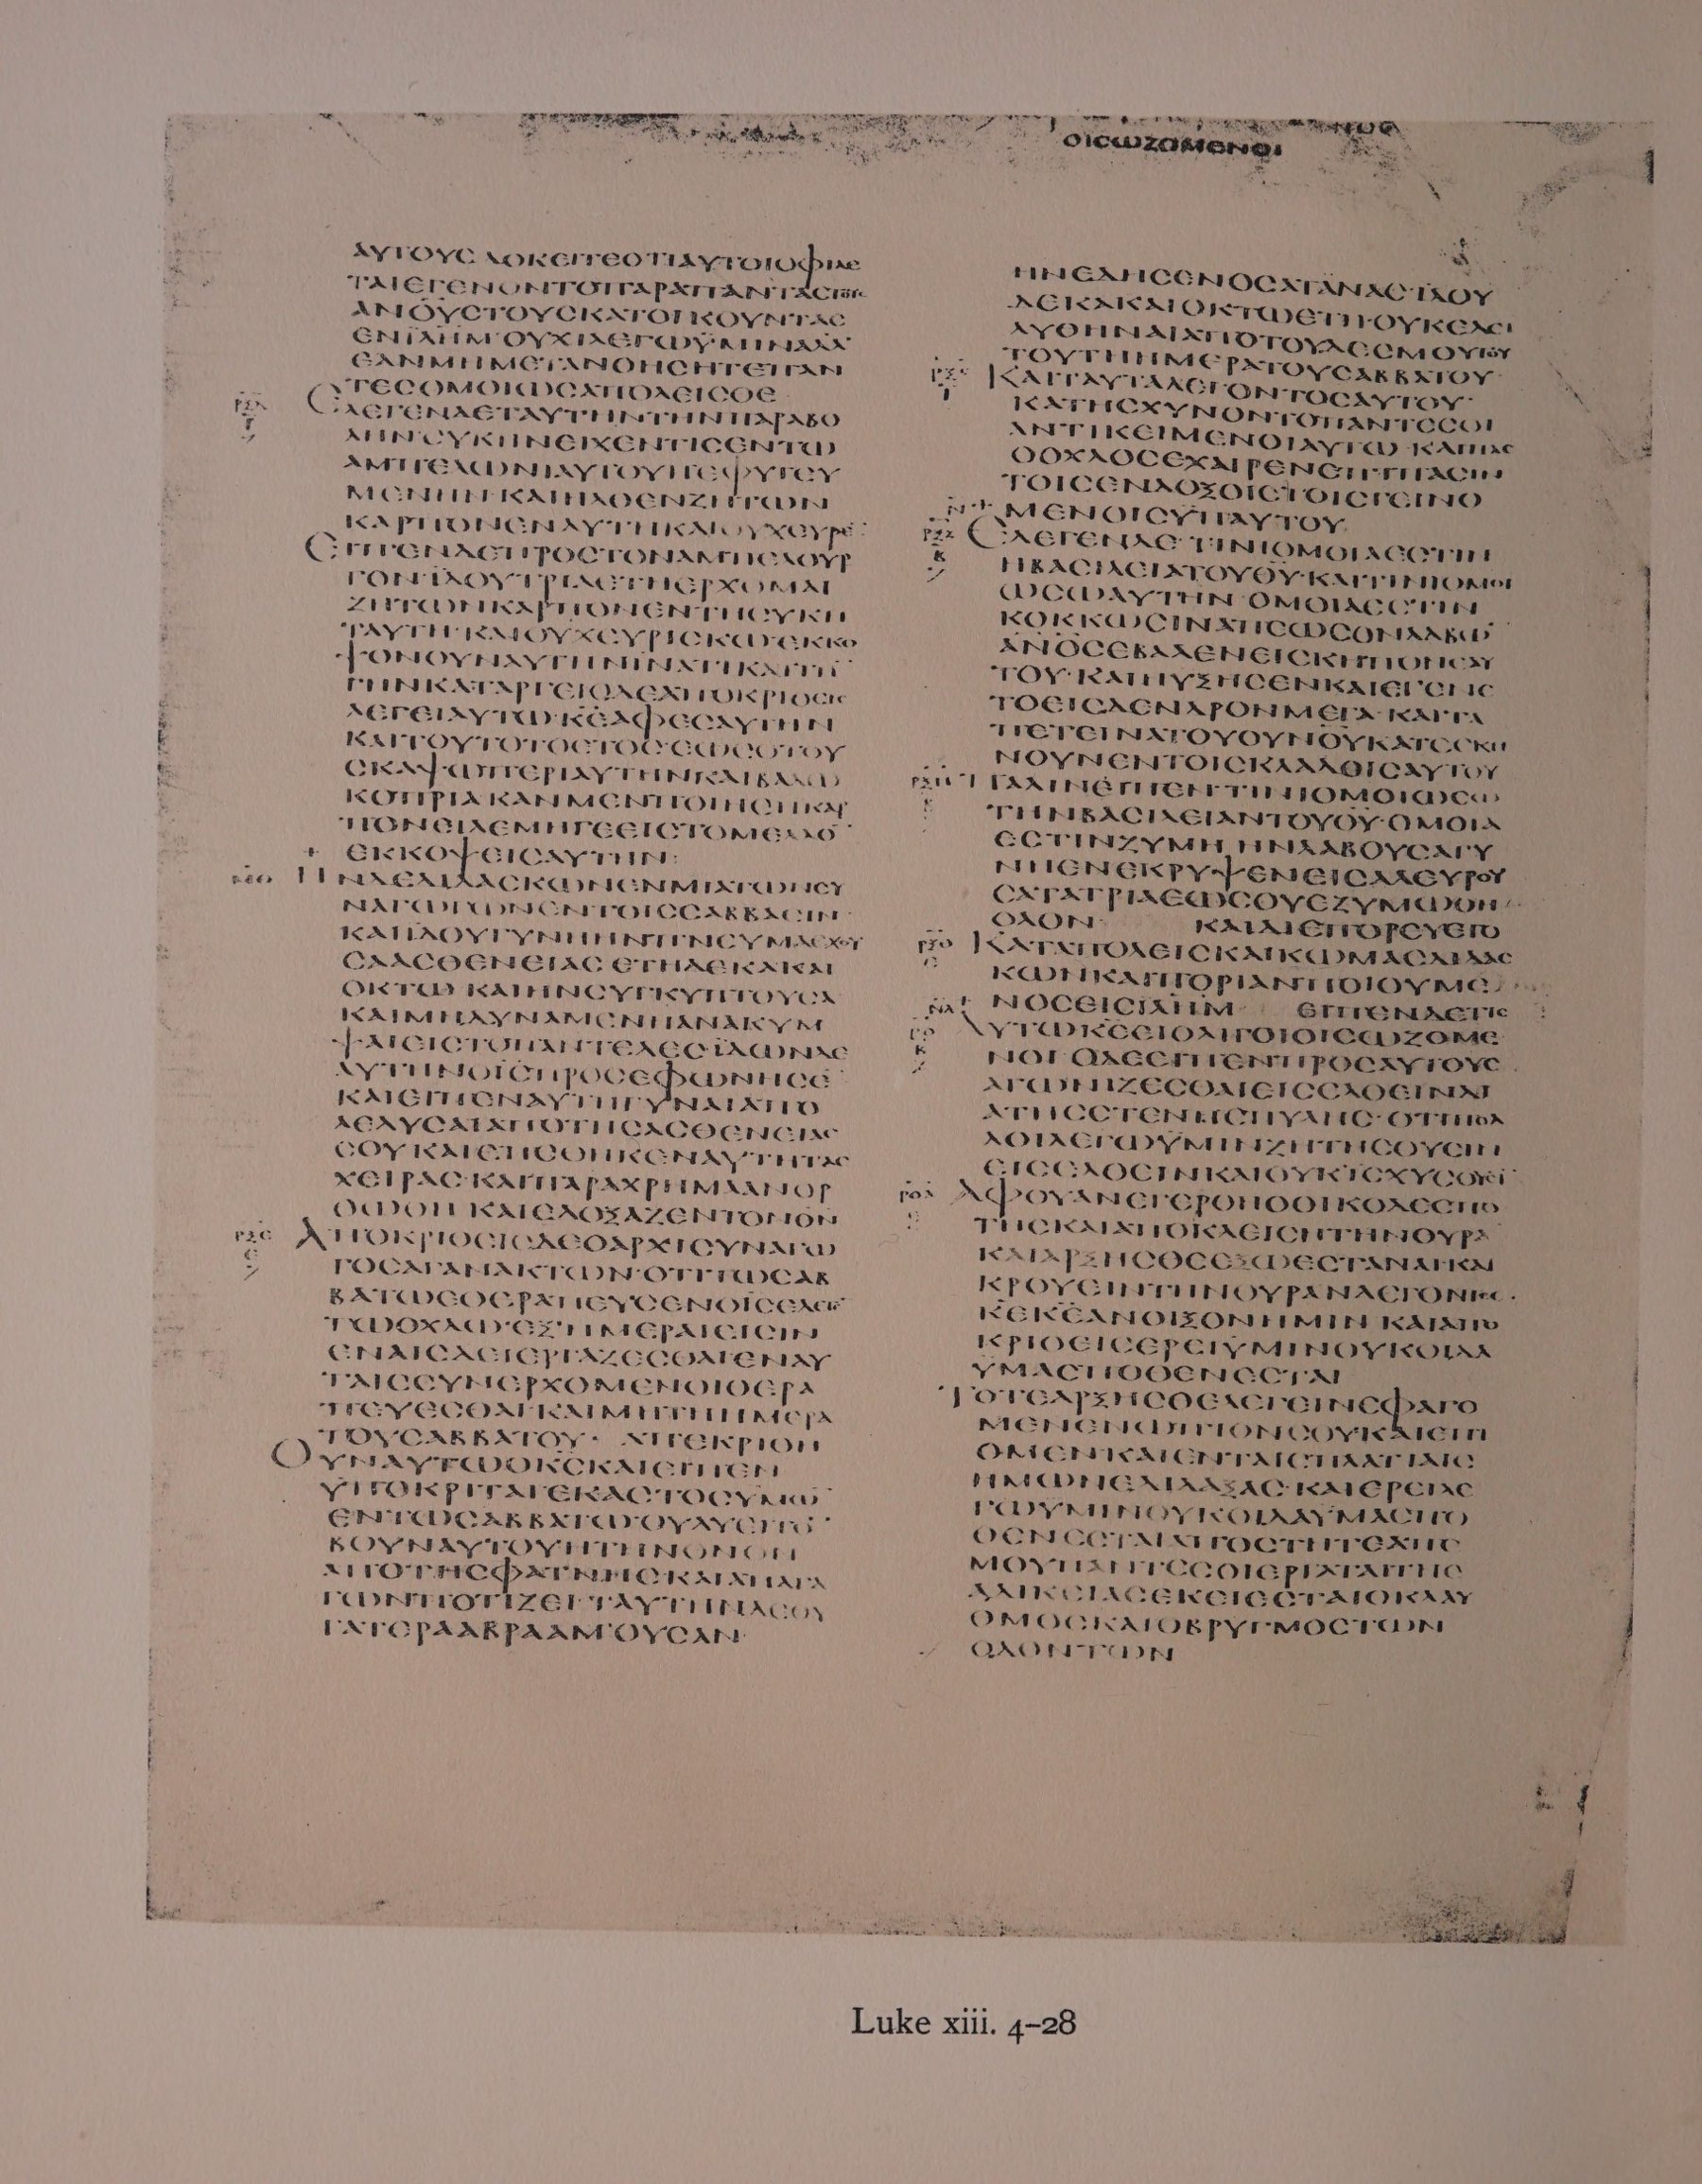 ΟΙϹΩΖΟΜΕΝΟΙ
ΑΥΤΟΥϹ ΔΟΚΕΙΤΕΟΤΙΑΥΤΟΙΟΦΙΛΕ
ΤΑΙΕΓΕΝΟΝΤΟΠΑΡΑΠΑΝΤΑϹΤΟΥϹ
ΑΝΟΥϹΤΟΥϹΚΑΤΟΙΚΟΥΝΤΑϹ
ΕΝΪΛΗΜ ΟΥΧΙΛΕΓΩΫΜΙΝΑΛΛ
ΕΑΝΜΗΜΕΤΑΝΟΗϹΗΤΕΠΑΝ
ΤΕϹΟΜΟΙΩϹΑΠΟΛΕΙϹΘΕ
ΕΛΕΓΕΝΔΕΤΑΥΤΗΝΤΗΝΠΑΡΑΒΟ
ΛΗΝ ϹΥΚΗΝΕΙΧΕΝΤΙϹΕΝΤΩ
ΑΜΠΕΛΩΝΙΑΥΤΟΥΠΕΦΥΤΕΥ
ΜΕΝΗΝ ΚΑΙΗΛΘΕΝΖΗΤΩΝ
ΚΑΡΠΟΝΕΝΑΥΤΗΚΑΙΟΥΧΕΥΡΕ
ΕΙΠΕΝΔΕΠΡΟϹΤΟΝΑΜΠΕΛΟΥΡ
ΓΟΝ ΪΔΟΥΤΡΙΑΕΤΗΕΡΧΟΜΑΙ
ΖΗΤΩΝΚΑΡΠΟΝΕΝΤΗϹΥΚΗ
ΤΑΥΤΗ ΚΑΙΟΥΧΕΥΡΙϹΚΩ ΕΚΚΟ
ΨΟΝΟΥΝΑΥΤΗΝΙΝΑΤΙΚΑΙΤΗ
ΓΗΝΚΑΤΑΡΓΕΙΟΔΕΑΠΟΚΡΙΘΕΙϹ
ΛΕΓΕΙΑΥΤΩ ΚΕΑΦΕϹΑΥΤΗΝ
ΚΑΙΤΟΥΤΟΤΟΕΤΟϹ ΕΩϹΟΤΟΥ
ϹΚΑΨΩΠΕΡΙΑΥΤΗΝΚΑΙΒΑΛΩ
ΚΟΠΡΙΑ ΚΑΝΜΕΝΠΟΙΗϹΗΚΑΡ
ΠΟΝΕΙΔΕΜΗΓΕΕΙϹΤΟΜΕΛΛΟ
ΕΚΚΟΨΕΙϹΑΥΤΗΝ:
ΗΝΔΕΔΙΔΑϹΚΩΝΕΝΜΙΑΤΩΝϹΥ
ΝΑΓΩΓΩΝΕΝΤΟΙϹϹΑΒΒΑϹΙΝ
ΚΑΙΙΔΟΥΓΥΝΗΗΝΠΝΕΥΜΑΕΧΟΥ
ϹΑΑϹΘΕΝΕΙΑϹ ΕΤΗΔΕΚΑΚΑΙ
ΟΚΤΩ ΚΑΙΗΝϹΥΓΚΥΠΤΟΥϹΑ
ΚΑΙΜΗΔΥΝΑΜΕΝΗΑΝΑΚΥΜ
ΨΑΙΕΙϹΤΟΠΑΝΤΕΛΕϹ ΪΔΩΝΔΕ
ΑΥΤΗΝΟΙϹΠΡΟϹΕΦΩΝΗϹΕ
ΚΑΙΕΙΠΕΝΑΥΤΗΓΥΝΑΙΑΠΟ
ΛΕΛΥϹΑΙΑΠΟΤΗϹΑϹΘΕΝΕΙΑϹ
ϹΟΥ ΚΑΙΕΠΕΘΗΚΕΝΑΥΤΗΤΑϹ
ΧΕΙΡΑϹ ΚΑΙΠΑΡΑΧΡΗΜΑΑΝΟΡ
ΘΩΘΗ ΚΑΙΕΔΟΞΑΖΕΝΤΟΝΘΝ
ΑΠΟΚΡΙΘΕΙϹΔΕΟΑΡΧΙϹΥΝΑΓΩ
ΓΟϹΑΓΑΝΑΚΤΩΝ ΟΤΙΤΩϹΑΒ
ΒΑΤΩΕΘΕΡΑΠΕΥϹΕΝΟΙϹΕΛΕΓΕ
ΤΩΟΧΛΩ ΕΞΗΜΕΡΑΙΕΙϹΙΝ
ΕΝΑΙϹΔΕΙΕΡΓΑΖΕϹΘΑΙΕΝΑΥ
ΤΑΙϹΕΥΝΕΡΧΟΜΕΝΟΙΘΕΡΑ
ΠΕΥΕϹΘΑΙ ΚΑΙΜΗΤΗΗΜΕΡΑ
ΤΟΥϹΑΒΒΑΤΟΥ· ΑΠΕΚΡΙΘΗ
ΟΥΝΑΥΤΩΟΚϹΚΑΙΕΙΠΕΝ
ΥΠΟΚΡΙΤΑΙΕΚΑϹΤΟϹΥΜΩ
ΕΝΤΩϹΑΒΒΑΤΩ ΟΥΛΥΕΙΤΟ
ΒΟΥΝΑΥΤΟΥΗΤΗΝΟΝΟΝ
ΑΠΟΤΗϹΦΑΤΝΗϹΚΑΙΑΠΑΓΑ
ΓΩΝΠΟΤΙΖΕΙ ΤΑΥΤΗΝΔΕΟΥ
ΓΑΤΕΡΑΑΒΡΑΑΜ ΟΥϹΑΝ
ΗΝΕΔΗϹΕΝΟϹΑΤΑΝΑϹ ΪΔΟΥ
ΔΕΚΑΚΑΙΟΚΤΩΕΤΗ ΟΥΚΕΔΕΙ
ΛΥΘΗΝΑΙΑΠΟΤΟΥΔΕϹΜΟΥΤΟΥ
ΤΟΥΤΗΗΜΕΡΑΤΟΥϹΑΒΒΑΤΟΥ
ΚΑΙΤΑΥΤΑΛΕΓΟΝΤΟϹΑΥΤΟΥ
ΚΑΤΗϹΧΥΝΟΝΤΟΠΑΝΤΕϹΟΙ
ΑΝΤΙΚΕΙΜΕΝΟΙΑΥΤΩ ΚΑΙΠΑϹ
ΟΟΧΛΟϹΕΧΑΙΡΕΝΕΠΙΠΑϹΙΝ
ΤΟΙϹΕΝΔΟΞΟΙϹΤΟΙϹΓΕΙΝΟ
ΜΕΝΟΙϹΥΠΑΥΤΟΥ
ΕΛΕΓΕΝΔΕ ΤΙΝΙΟΜΟΙΑΕϹΤΙΝ
ΗΒΑϹΙΛΕΙΑΤΟΥΘΥ ΚΑΙΤΙΝΙΟΜΟΙ
ΩϹΩΑΥΤΗΝ ΟΜΟΙΑΕϹΤΙΝ
ΚΟΚΚΩϹΙΝΑΠΕΩϹΟΝΛΑΒΩ
ΑΝΟϹΕΒΑΛΕΝΕΙϹΚΗΠΟΝΕΑΥ
ΤΟΥ ΚΑΙΗΥΞΗϹΕΝΚΑΙΕΓΕΝΕ
ΤΟΕΙϹΔΕΝΔΡΟΝΜΕΓΑ ΚΑΙΤΑ
ΠΕΤΕΙΝΑΤΟΥΟΥΝΟΥΚΑΤΕϹΚΗ
ΝΟΥΝΕΝΤΟΙϹΚΛΑΔΟΙϹΑΥΤΟΥ
ΠΑΛΙΝΕΙΠΕΝ ΤΙΝΙΟΜΟΙΩϹΩ
ΤΗΝΒΑϹΙΛΕΙΑΝΤΟΥΘΥ ΟΜΟΙΑ
ΕϹΤΙΝΖΥΜΗ ΗΝΛΑΒΟΥϹΑΓΥ
ΝΗΕΝΕΚΡΥΨΕΝΕΙϹΑΛΕΥΡΟΥ
ϹΑΤΑΤΡΙΑΕΩϹΟΥΕΖΥΜΩΘΗ
ΟΛΟΝ· ΚΑΙΔΙΕΠΟΡΕΥΕΤΟ
ΚΑΤΑΠΟΛΕΙϹΚΑΙΚΩΜΑϹΔΙΔΑϹ
ΚΩΝΚΑΙΠΟΡΙΑΝΠΟΙΟΥΜΕ
ΝΟϹΕΙϹΪΛΗΜ· ΕΙΠΕΝΔΕΤΙϹ
ΑΥΤΩΚΕΕΙΟΛΙΓΟΙΟΙϹΩΖΟΜΕ
ΝΟΙ ΟΔΕΕΙΠΕΝΠΡΟϹΑΥΤΟΥϹ
ΑΓΩΝΙΖΕϹΘΑΙΕΙϹΕΛΘΕΙΝΔΙ
ΑΤΗϹϹΤΕΝΗϹΠΥΛΗϹ ΟΤΙΠΟΛ
ΛΟΙΛΕΓΩΫΜΙΝΖΗΤΗϹΟΥϹΙΝ
ΕΙϹΕΛΘΕΙΝΚΑΙΟΥΚΙϹΧΥϹΟΥϹΙ
ΑΦΟΥΑΝΕΓΕΡΘΗΟΟΙΚΟΔΕϹΠΟ
ΤΗϹΚΑΙΑΠΟΚΛΕΙϹΗΤΗΝΘΥΡΑ
ΚΑΙΑΡΞΗϹΘΕΕΞΩΕϹΤΑΝΑΙΚΑΙ
ΚΡΟΥΕΙΝΤΗΝΘΥΡΑΝΛΕΓΟΝΤΕϹ
ΚΕΚΕΑΝΟΙΞΟΝΗΜΙΝ ΚΑΙΑΠΟ
ΚΡΙΘΕΙϹΕΡΕΙΫΜΙΝΟΥΚΟΙΔΑ
ΫΜΑϹΠΟΘΕΝΕϹΤΑΙ
ΤΟΤΕΑΡΞΗϹΘΕΛΕΓΕΙΝΕΦΑΓΟ
ΜΕΝΕΝΩΠΙΟΝϹΟΥΚΑΙΕΠΙ
ΟΜΕΝΚΑΙΕΝΤΑΙϹΠΛΑΤΙΑΙϹ
ΗΜΩΝΕΔΙΔΑΞΑϹ ΚΑΙΕΡΕΙΛΕ
ΓΩΫΜΙΝΟΥΚΟΙΔΑΫΜΑϹΠΟ
ΘΕΝΕϹΤΑΙΑΠΟϹΤΗΤΕΑΠΕ
ΜΟΥΠΑΝΤΕϹΟΙΕΡΓΑΤΑΙΤΗϹ
ΑΔΙΚΕΙΑϹΕΚΕΙΕϹΤΑΙΟΚΛΑΥ
ΘΜΟϹΚΑΙΟΒΡΥΓΜΟϹΤΩΝ
ΟΔΟΝΤΩΝ
Luke xiii. 4–28